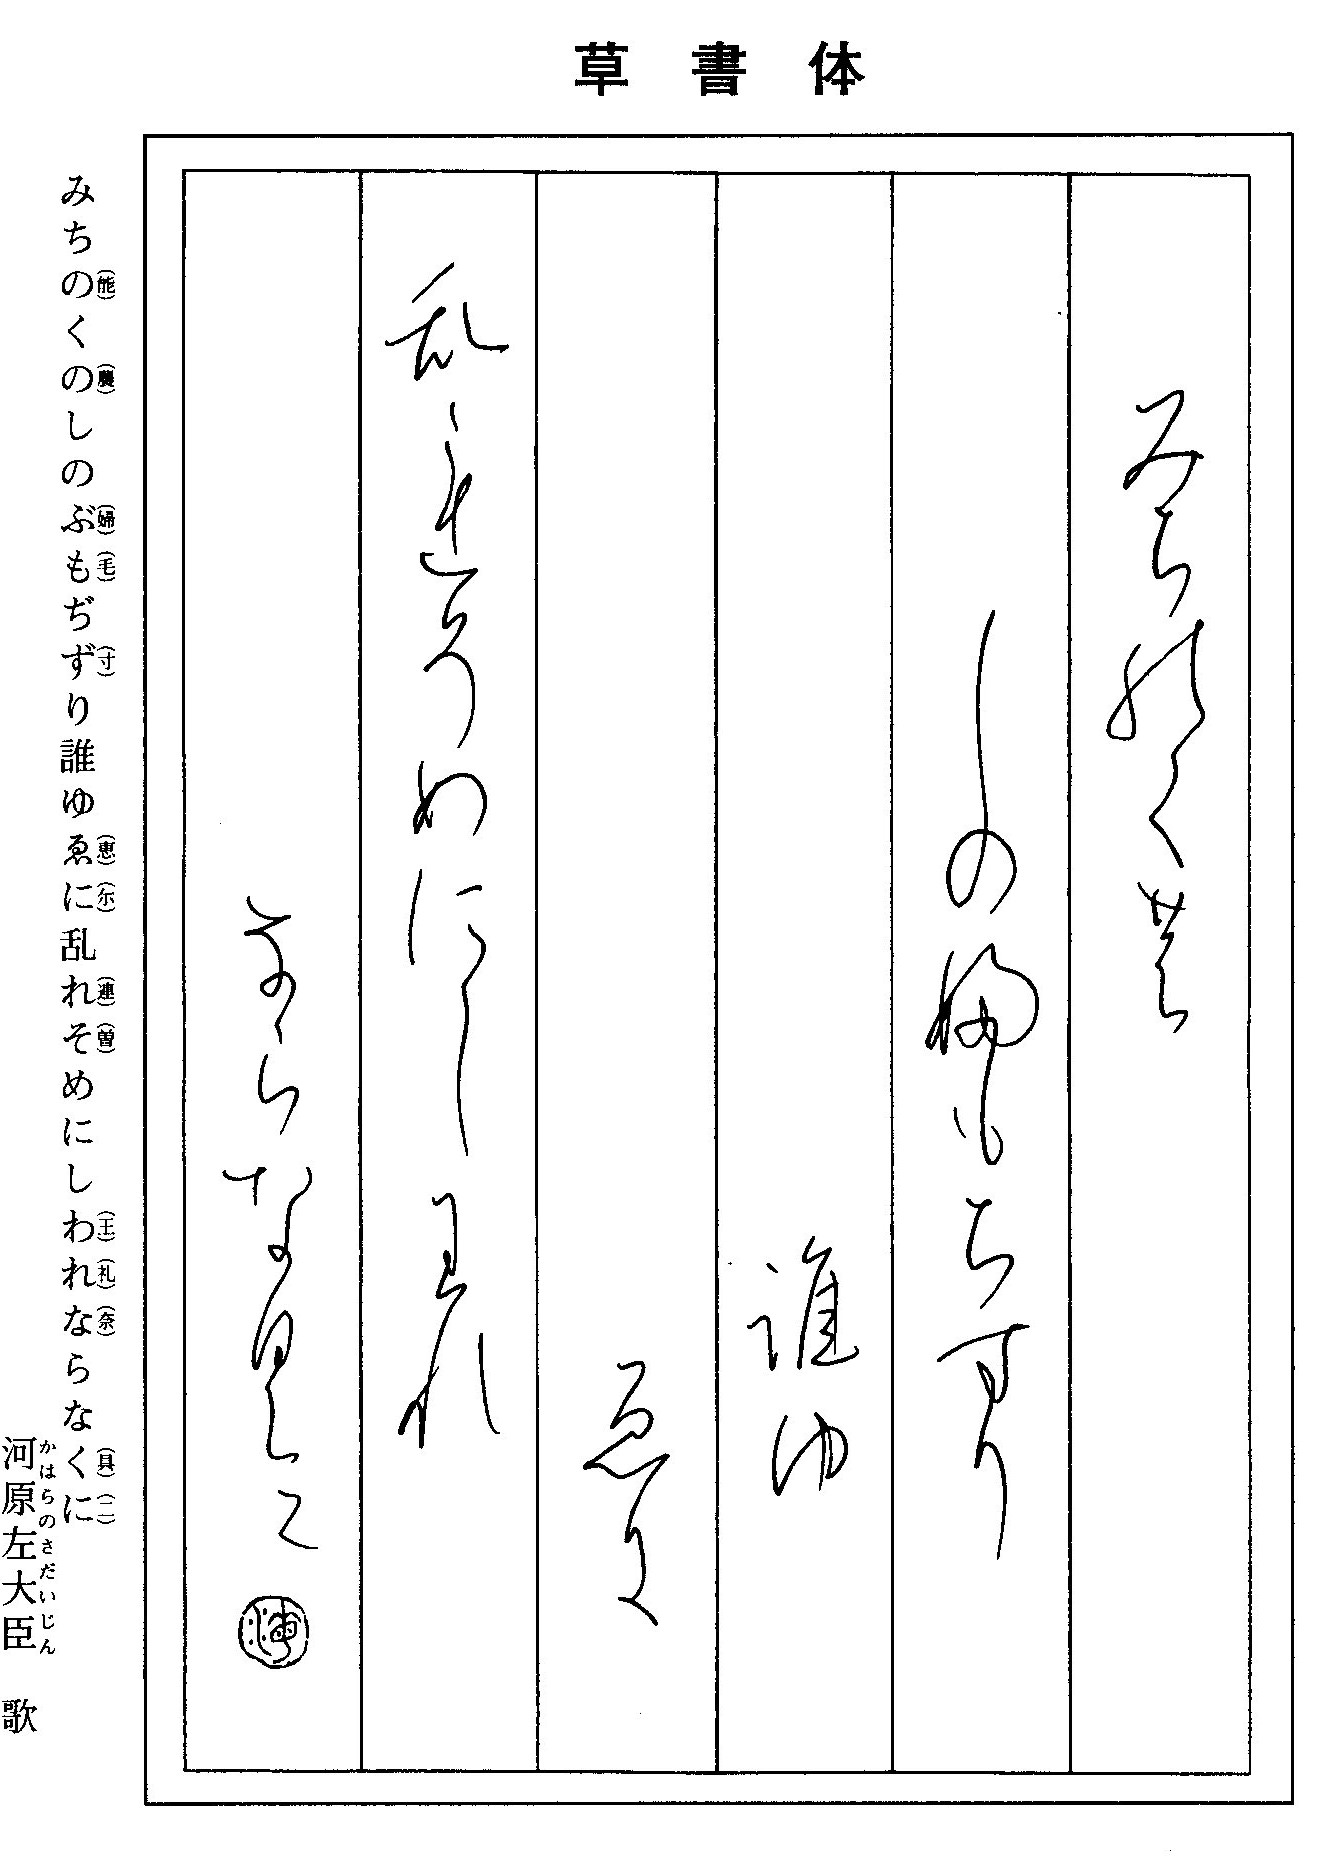 草書体
みち能く農
しの婦毛ち寸り
誰ゆ
恵尓
乱連曽めにし王礼
奈らな具二
みちの(能)くの(農)しのぶ(婦)も(毛)ぢず(寸)り誰ゆゑ(恵)に(尓)乱れ(連)そ(曽)めにしわ(王)れ(礼)な(奈)らなく(具)に(二)
かはらのさだいじん
河原左大臣 歌